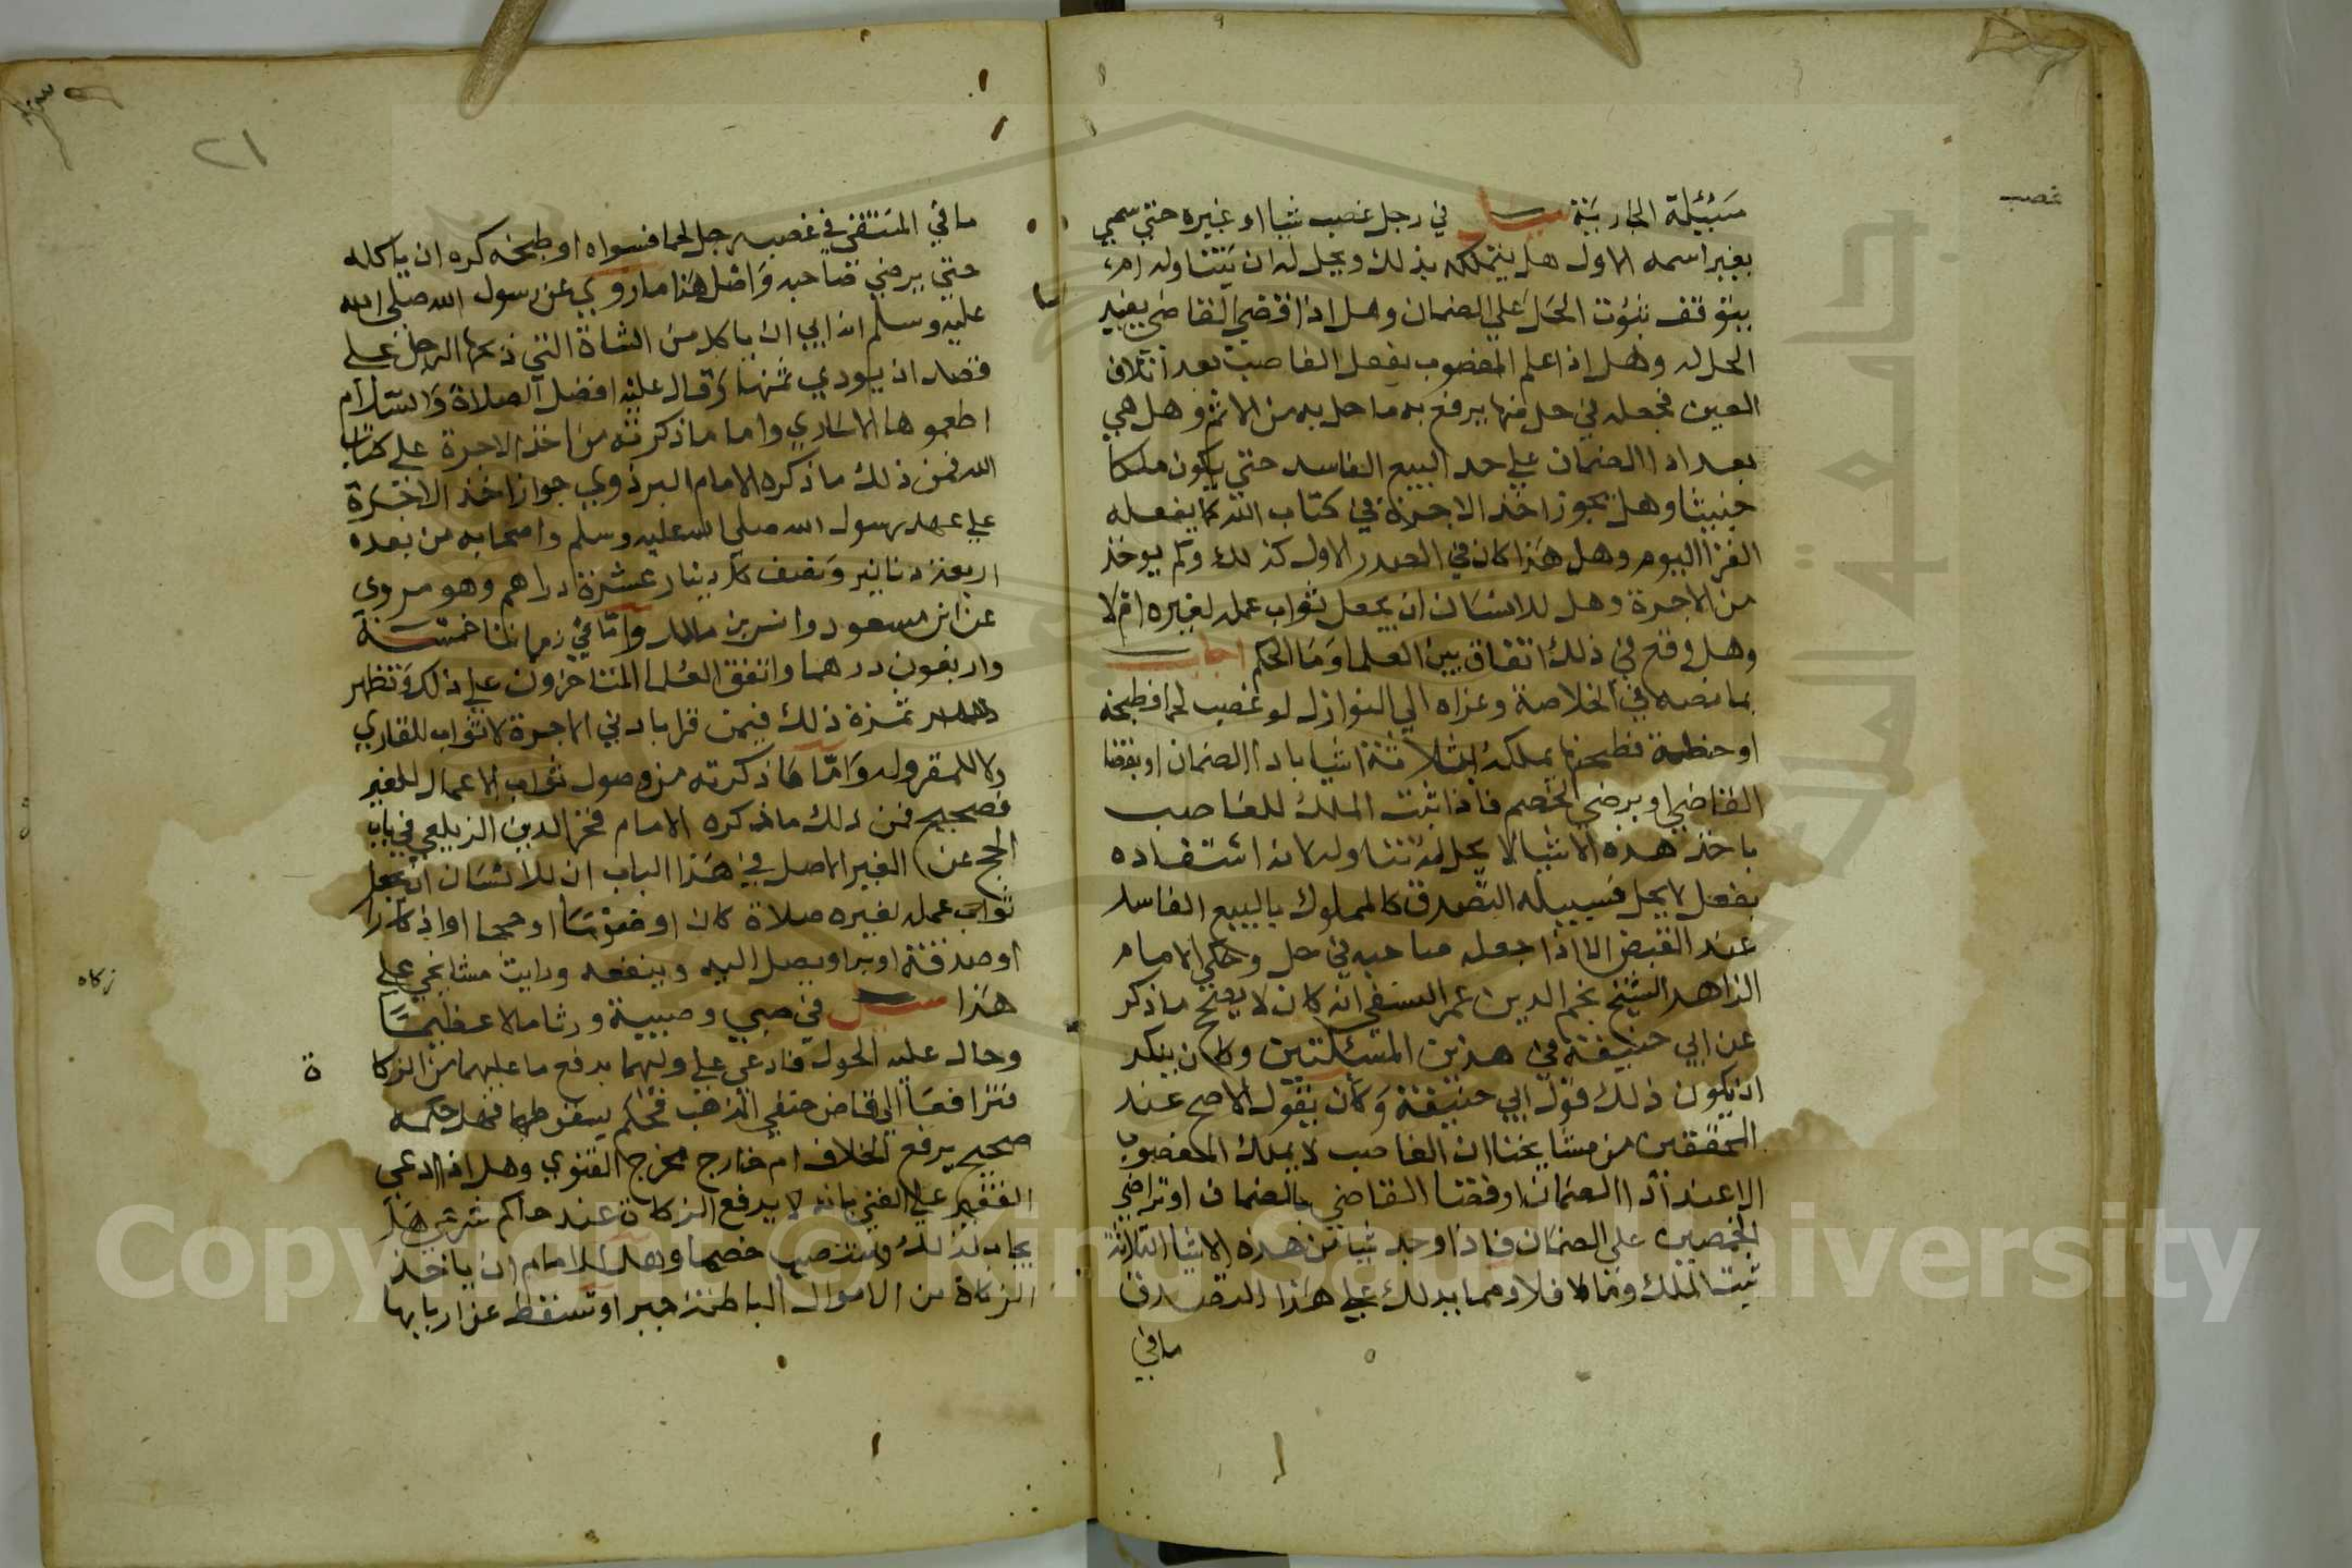 غصب
مسئلة الجاربنة سئل في رجل غصب شيا او غيره حتي سمي
بغير اسمه الاول هل يتملكه بذلك ويحل له ان يتناوله ام
يتوقف ثبوت الحل علي الضمان وهل اذا قضي القاضي بغير
الحل له وهل اذا علم المغصوب بفعل الغاصب بعد اتلاف
العين فجعله في حل منها يرفع به ما حل به من الاثم وهل هي
بعد ادا الضمان علي حد البيع الفاسد حتي يكون ملكا
خبيثا وهل يجوز اخذ الاجرة في كتاب الله كما يفعله
القرا اليوم وهل هذا كان في الصدر الاول كذلك وكم يوخذ
من الاجرة وهل للانسان ان يجعل ثواب عمله لغيره ام لا
وهل وقع في ذلك اتفاق بين العلما وما الحكم اجاب
بما نصه في الخلاصة وعزاه الي النوازل لو غصب لحما فطبخه
او حنطة فطحنها يملكه بثلاثة اشيا بادا الضمان او بقضا
القاضي او برضي الخصم فاذا ثبت الملك للغاصب
باخذ هذه الاشيا لا يحل له تناوله لانه استفاده
بفعل لا يحل فسبيله التصدق كالمملوك بالبيع الفاسد
عند القبض الا اذا جعله صاحبه في حل وحكي الامام
الزاهد الشيخ نجم الدين عمر النسفي انه كان لا يصح ما ذكر
عن ابي حنيفة في هذين المسئلتين وكان ينكر
ان يكون ذلك قول ابي حنيفة وكان يقول الاصح عند
المحققين من مشايخنا ان الغاصب لا يملك المغصوب
الا عند ادا الضمان او قضا القاضي بالضمان او تراضي
الخصمين علي الضمان فاذا وجد شيا من هذه الاشيا الثلاثة
ثبت الملك وما لا فلا ومما يدلك علي هذا التصدق
ما في
٢١
ما في المنتقي في غصب رجل لحما فسواه او طبخه كره ان ياكله
حتي يرضي صاحبه واصل هذا ما روي عن رسول الله صلي الله
عليه وسلم انه ابي ان ياكل من الشاة التي ذبحها الرجل علي
قصد ان يودي ثمنها وقال عليه افضل الصلاة والسلام
اطعموها الاساري واما ما ذكرته من اخذ الاجرة علي كتاب
الله فمن ذلك ما ذكره الامام البزدوي جواز اخذ الاجرة
علي عهد رسول الله صلي الله عليه وسلم واصحابه من بعده
اربعة دنانير ونصف كل دينار عشرة دراهم وهو مروي
عن ابن مسعود وانس بن مالك واما في زماننا خمسة
واربعون درهما واتفق العلما المتاخرون علي ذلك وتظهر
ثمرة ذلك فيمن قرا بادني الاجرة لا ثواب للقاري
ولا للمقروله واما ما ذكرته من وصول ثواب الاعمال للغير
فصحيح فمن ذلك ما ذكره الامام فخر الدين الزيلعي في باب
الحج عن الغير الاصل في هذا الباب ان للانسان ان يجعل
ثواب عمله لغيره صلاة كان او صوما او حجا او اذكارا
او صدقة او برا ويصل اليه وينفعه ورايت مشايخي علي
هذا سئل في صبي وصبية ورثا مالا عظيما
زكاه
وحال عليه الحول فادعي علي وليهما بدفع ما عليهما من الزكا
ة
فترافعا الي قاض حنفي المذهب فحكم بسقوطها فهل حكمه
صحيح يرفع الخلاف ام خارج مخرج الفتوي وهل اذا ادعي
الفقير علي الغني بانه لا يدفع الزكاة عند حاكم شرعي هل
يجاب لذلك وينتصب خصما وهل للامام ان ياخذ
الزكاة من الاموال الباطنة جبرا او تسقط عن اربابها
Copyright © King Saud University
جامعة الملك سعود